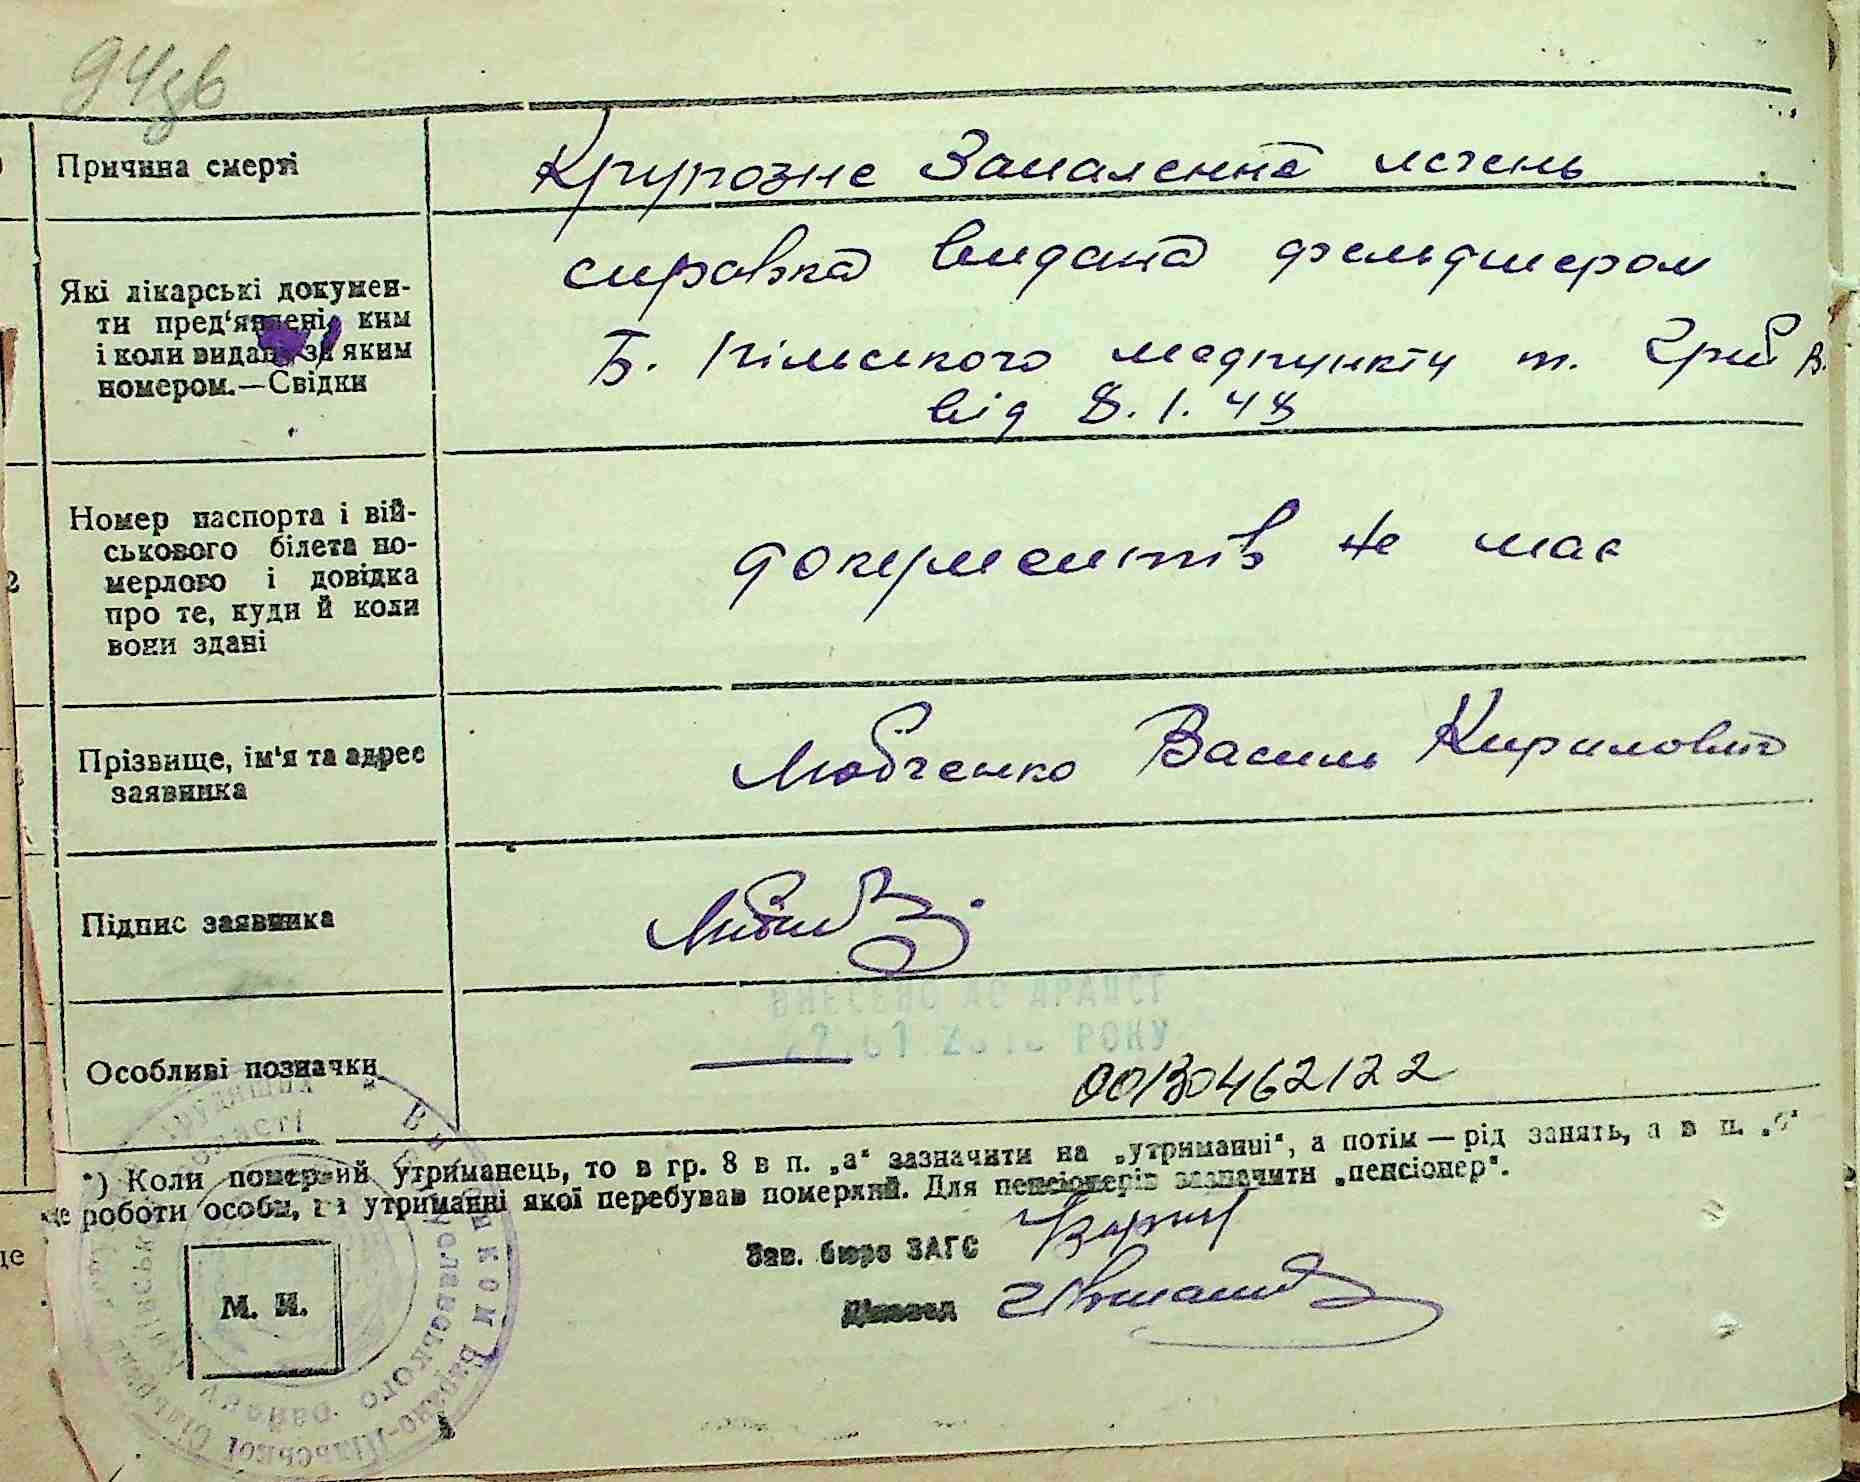 94зв
Причина смерті
Крупозне Запалення легень
Які лікарські докумен-
ти пред'явлені, ким
і коли видані за яким
номером.—Свідки
справка видана фельдшером
Б. Кільського медпункту т. Гриб В.
від 8.1.48
Номер паспорта і вій-
ськового білета по-
мерлого і довідка
про те, куди й коли
вони здані
документів не має
Прізвище, ім'я та адрес
заявника
Любченко Василь Кирилович
Підпис заявника
ВНЕСЕНО ДО ДРАЦСГ
РОКУ
Особливі позначки
00130462122
*) Коли померлий утриманець, то в гр. 8 в п. „а“ зазначити на „утриманні“, а потім — рід занять, а в п. „б“
роботи особи, на утриманні якої перебував померлий. Для пенсіонерів зазначити „пенсіонер“.
Зав. бюро ЗАГС
Діловод
М. П.